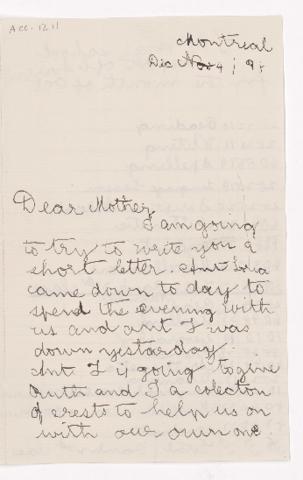 Acc. 1211
Montreal
Dec 9
Dear Mother
I am going
to try to write you a
short letter. Ant
came down to day to
spend the evening with
us and ant I was
down yestarday.
Ant I is going to give
Ruth and I a colection
of crests to help us on
with our own one